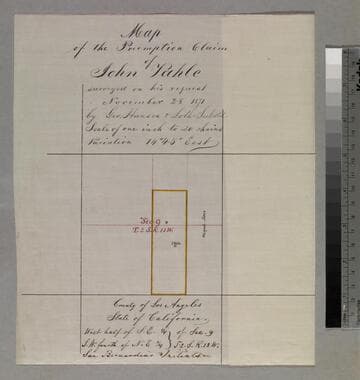 Map
of the Preemption Claim
of
John Vahle
surveyed on his request
November 28 1871
by Geo. Hansen &
Scale of one inch to 20 chains
Variation 14°45' East
Sec 9
T. 2 S. R. 13 W.
County of Los Angeles
State of California
West half of S.E. ¼ of Sec. 9
S.W. fourth of N.E. ¼ T. 2. S. R. 13 W.
San Bernardino Meridian